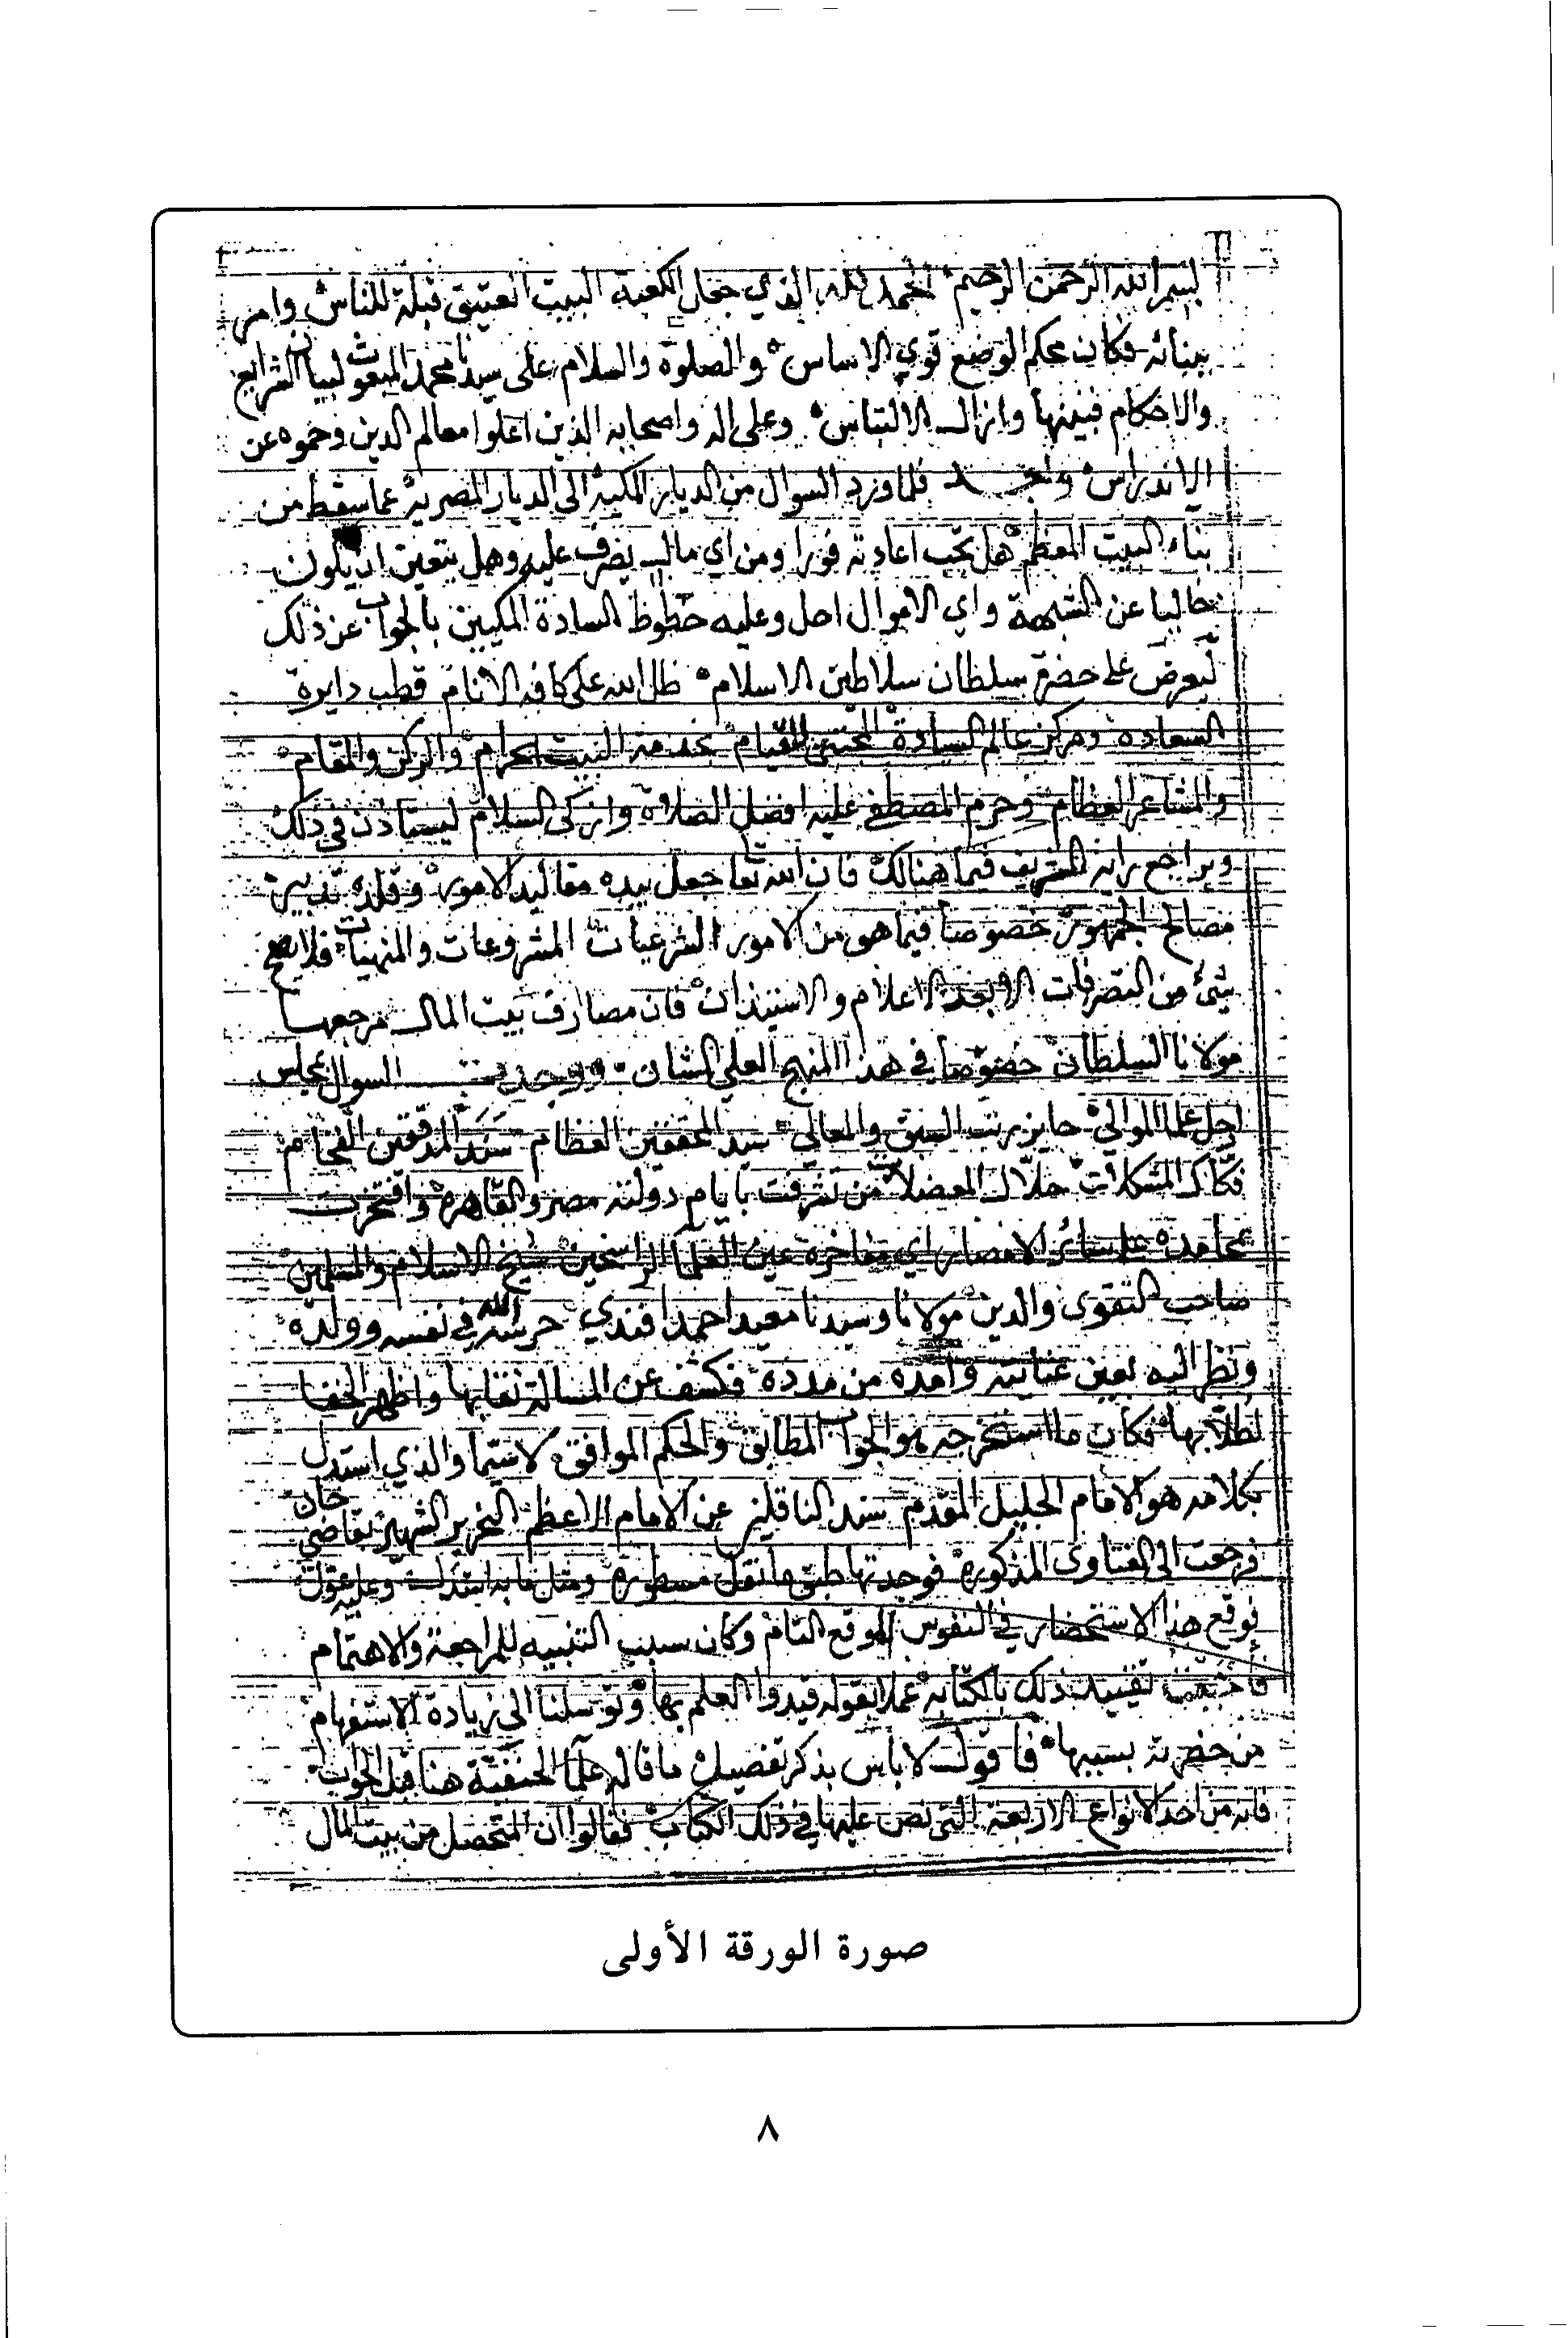 بسم الله الرحمن الرحيم الحمد لله الذي جعل الكعبة البيت العتيق قبلة للناس وامر
ببنائه فكان محكم الوضع قوي الاساس والصلوة والسلام على سيدنا محمد المبعوث لبيان الشرايع
والاحكام فبينها وازال الالتباس وعلى اله واصحابه الذين اعلوا معالم الدين وحموه عن
الاندراس وبعد فلما ورد السوال من الديار المكية الى الديار المصرية عما سقط من
بناء البيت المعظم هل يجب اعادته فورا ومن اي مال يصرف عليه وهل يتعين ان يكون
خاليا عن الشبهة واي الاموال احل وعليه خطوط السادة المكيين بالجواب عن ذلك
ليعرض على حضرة سلطان سلاطين الاسلام ظل الله على كافه الانام قطب دايرة
السعاده ومركز عالم السيادة المجتبى للقيام بخدمة البيت الحرام والركن والمقام
والمشاعر العظام وحرم المصطفى عليه افضل الصلاة وازكى السلام ليستاذن في ذلك
ويراجع رايه الشريف فيما هنالك فان الله تعا جعل بيده مقاليد الامور وقلده تدبير
مصالح الجمهور خصوصا فيما هو من الامور الشرعيات المشروعات والمنهيات فلا يصح
شئ من التصرفات الا بعد الاعلام والاستيذان فان مصارف بيت المال مرجعها
مولانا السلطان خصوصا في هذا المنهج العلي الشان ووجدت السوال بمجلس
اجل علما الموالي حايز رتب السبق والمعالي سيد المحققين العظام سند المدققين الفخام
فكاك المشكلات حلال المعضلات من تشرفت بايام دولته مصر والقاهرة وافتخرت
بمحامده على سائر الامصار اي مفاخرة عين العلما الراسخين شيخ الاسلام والمسلمين
صاحب التقوى والدين مولانا وسيدنا معيد احمد افندي حرسه الله في نفسه وولده
ونظر اليه بعين عنايته وامده من مدده فكشف عن المسالة نقابها واظهر الخفايا
لطلابها فكان ما استخرجه هو الجواب المطابق والحكم الموافق لاسيما والذي استدل
بكلامه هو الامام الجليل المقدم سند الناقلين عن الامام الاعظم النحرير الشهير بقاضي خان
فرجعت الى الفتاوى المذكورة فوجدتها طبق ما نقل مسطورة ومثل ما به استدل وعليه عول
فوقع هذا الاستحضار في النفوس الموقع التام وكان سبب التنبيه للمراجعة والاهتمام
فاحببت تقييد ذلك بالكتابة عملا بقوله قيدوا العلم بها وتوسلنا الى زيادة الاستفهام
من حضرته بسببها فاقول لا باس بذكر تفصيل ما قاله علما الحنفية هنا قبل الجواب
فانه من احد الانواع الاربعة التي نص عليها في ذلك الكتاب فقالوا ان المتحصل من بيت المال
صورة الورقة الأولى
٨